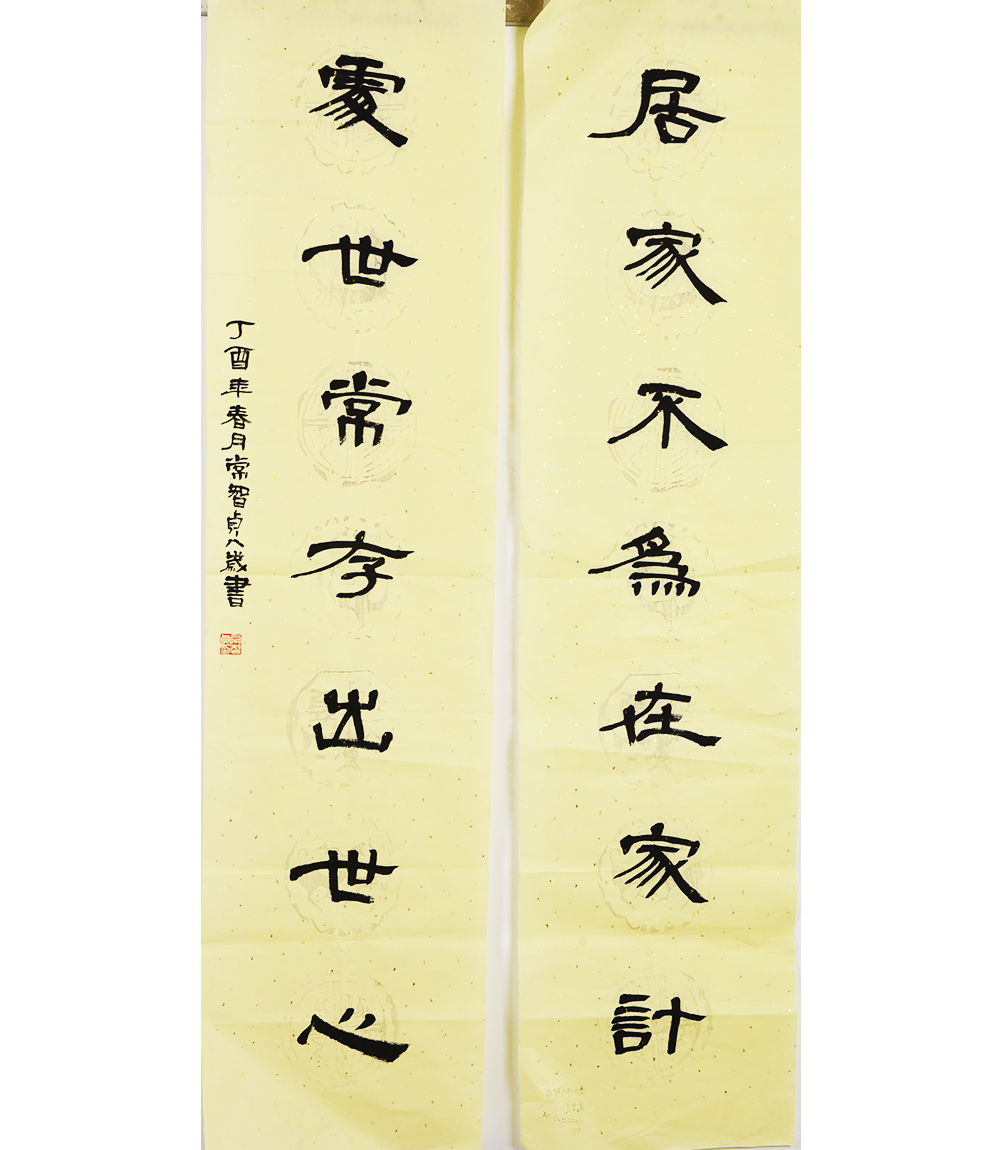 居家不爲在家計
處世常存出世心
丁酉年春月常智貞八歲書